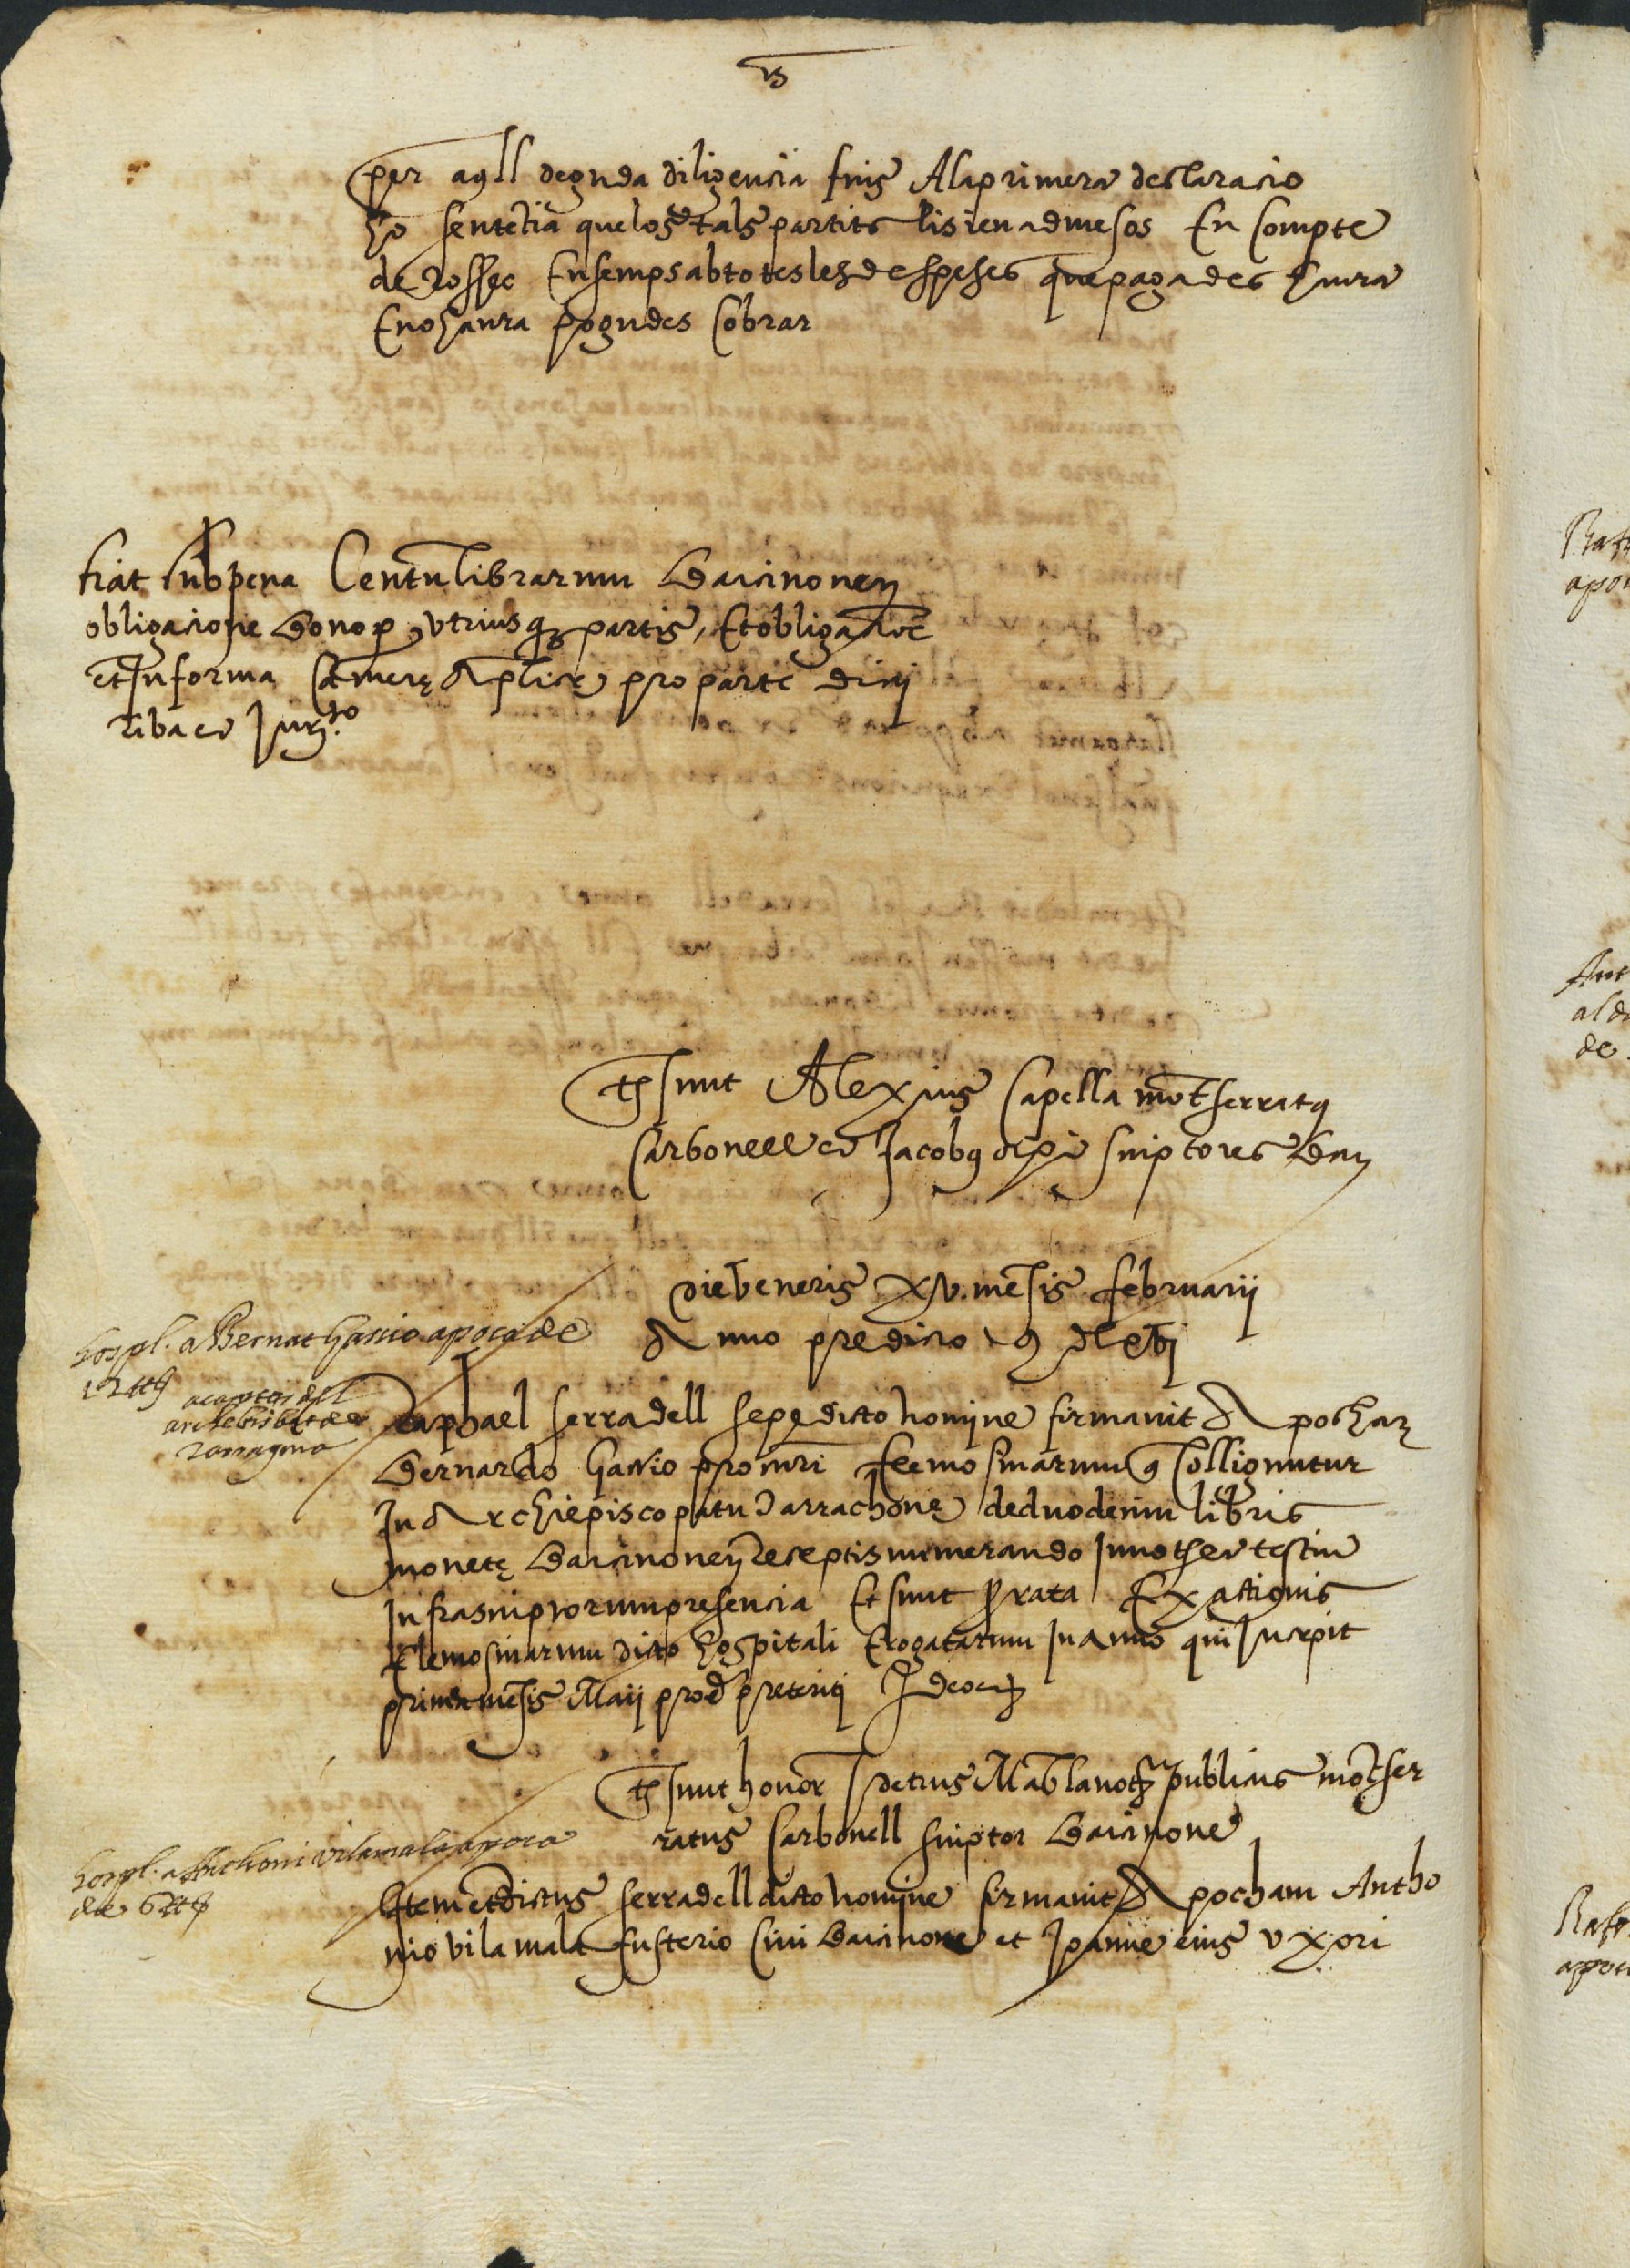 per aqll deguda diligencia fins Ala primera declaracio
ho sentecia que los tals partits li sien admesos En compte
de Rossec Ensemps ab totes les despeses que pagades haura
E no haura pogudes Cobrar
fiat sub pena Centu librarum Barcinonen
obligacione bonor utriusq partis, Et obliga
et In forma Camere Aplice pro parte dicti
riba et Jur.to
Ts sunt Alexius Capella motserratq
Carbonell et Jacobq scriptores Barn
die veneris XV. mesis februarii
Anno predicto
hospl. a Bernat Gassio apoca de
12 ℔
acaptes del
archebisbat de
Tarragona
Raphael serradell sepedicto nomine firmavit Apocham
Bernardo Gassio procuri Elemosinarum q Colliguntur
In Archiepiscopatu Tarrachone de duodecim libris
monete Barcinonen Receptis numerando In notarii testiu
Infrascriptorum presencia Et sunt prata Exactionis
Elemosinarum dicto hospitali Erogatarum In anno qui Incepit
primo mesis Maii prod preteriti Ideo etc
Ts sunt honor petrus Mablanot publicus motser
ratus Carbonell scriptor Barcinone
hospl. a Anthoni vilamala apoca
de 6 ℔
Item et dictus serradell dicto nomine firmavit Apocham Antho
nio vilamala fusterio Civi Barcinone et Joanne eius uxori